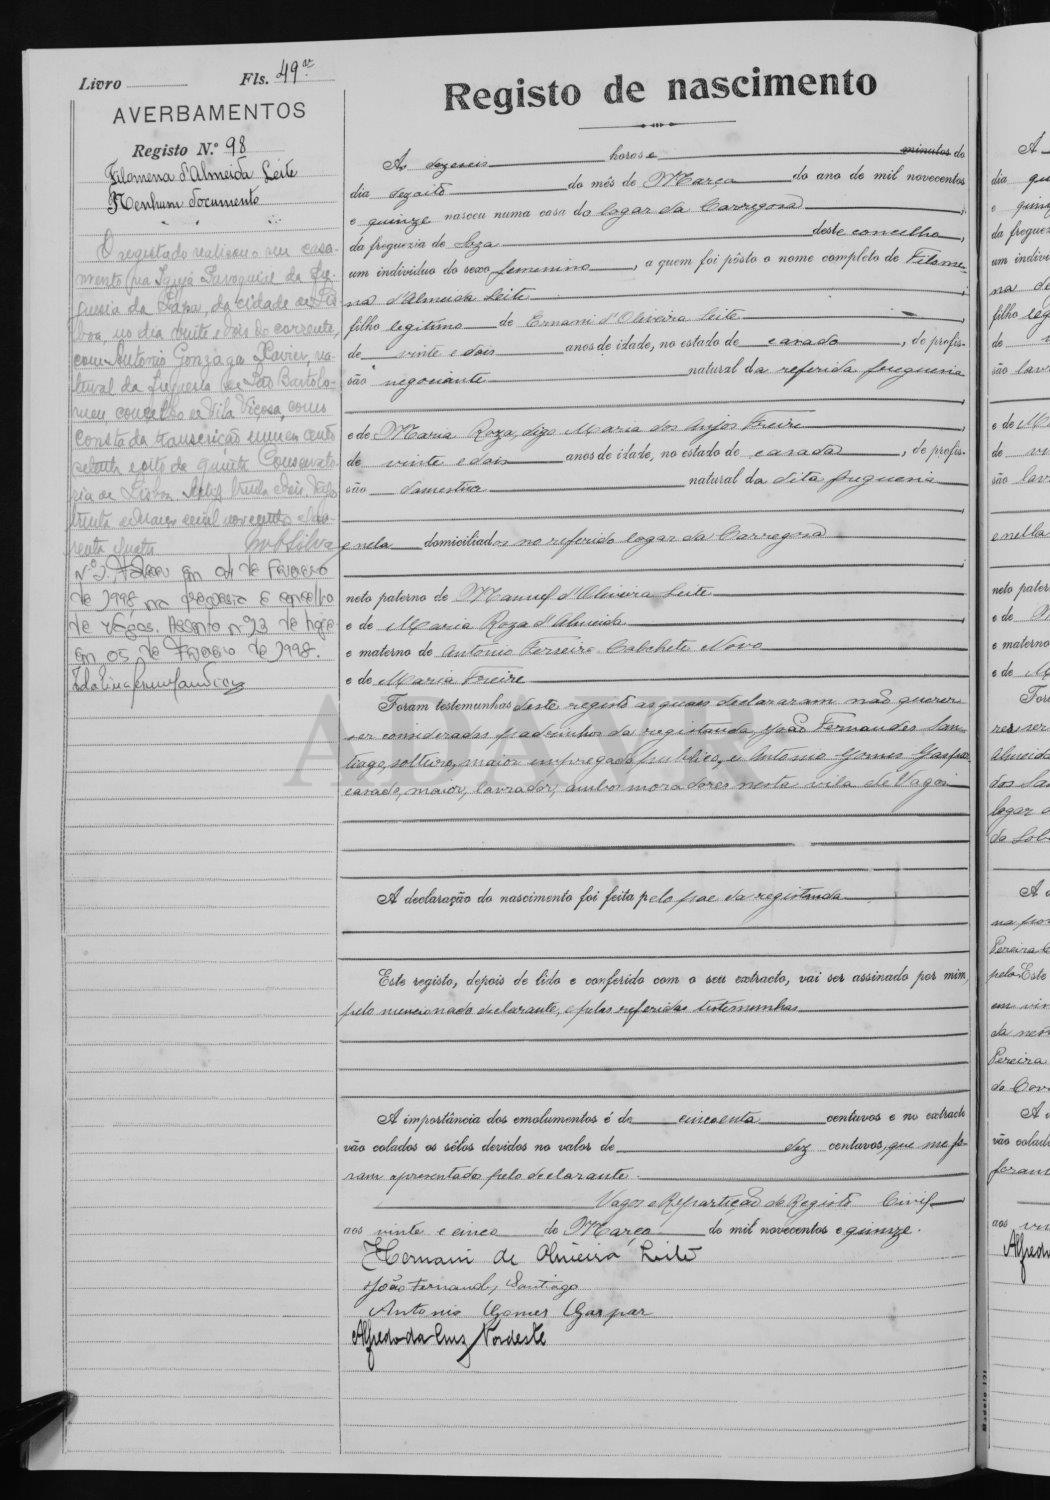 Livro Fls. 49 vº
AVERBAMENTOS
Registo N.º 98
Filomena d'Almeida Leite
Nenhum documento
O registado realisou o seu casa-
mento na Igreja Paroquial da fre-
guesia da Pena, da cidade de Lis-
boa, no dia vinte e dois do corrente,
com Antonio Gonzaga Xavier, na-
tural da freguesia de São Bartolo-
meu, concelho de Vila Viçosa, como
consta da transcrição numero cento
setenta e oito da quinta Conservato-
ria de Lisboa.
trinta e Março de mil novecentos e qua-
renta e quatro. Silva
Nº 2. Faleceu em 04 de Fevereiro
de 1998, na freguesia e concelho
de Vagos. Assento nº 23 de hoje
em 05 de Fevereiro de 1998.
Registo de nascimento
Ás dezeseis horas e minutos do
dia dezoito do mês de Março do ano de mil novecentos
e quinze nasceu numa casa do logar da Carregosa
da freguezia de Soza deste concelho,
um indivíduo do sexo feminino, a quem foi pôsto o nome completo de Filome-
na d'Almeida Leite
filho legitimo de Ernani d'Oliveira Leite
de vinte e dois anos de idade, no estado de casado, de profis-
são negociante natural da referida freguesia
e de Maria Roza, digo Maria dos Anjos Freire
de vinte e dois anos de idade, no estado de casada, de profis-
são domestica natural da dita freguesia
e nela domiciliados no referido logar da Carregosa
neto paterno de Manuel d'Oliveira Leite
e de Maria Roza d'Almeida
e materno de Antonio Ferreira Cabchete Novo
e de Maria Freire
Foram testemunhas deste registo as quais declararam não querer
ser consideradas padrinhos da registanda, João Fernandes San-
tiago, solteiro, maior empregado publico, e Antonio Gomes Gaspar
casado, maior, lavrador, ambos moradores nesta vila de Vagos
ADAVR
A declaração do nascimento foi feita pelo pae da registanda
Este registo, depois de lido e conferido com o seu extracto, vai ser assinado por mim,
pelo mencionado declarante, e pelas referidas testemunhas
A importância dos emolumentos é de cincoenta centavos e no extracto
vão colados os sêlos devidos no valor de dez centavos, que me fo-
ram apresentados pelo declarante.
Vagos e Repartição do Registo Civil
aos vinte e cinco de Março de mil novecentos e quinze.
Hernani de Oliveira Leite
João Fernandes Santiago
Antonio Gomes Gaspar
Alfredo da Cruz Nordeste